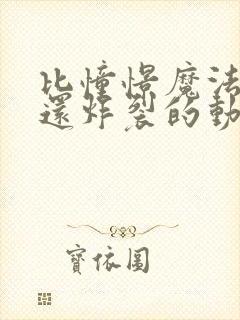 比憧憬魔法
還炸裂的動
寶依圓